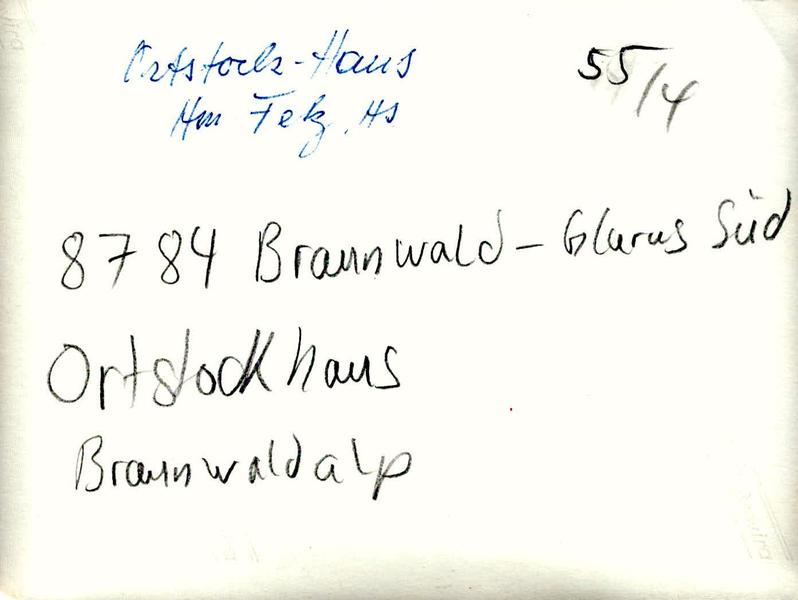 Ortstock-Haus
55/4
8784 Braunwald - Glarus Süd
Ortstockhaus
Braunwaldalp